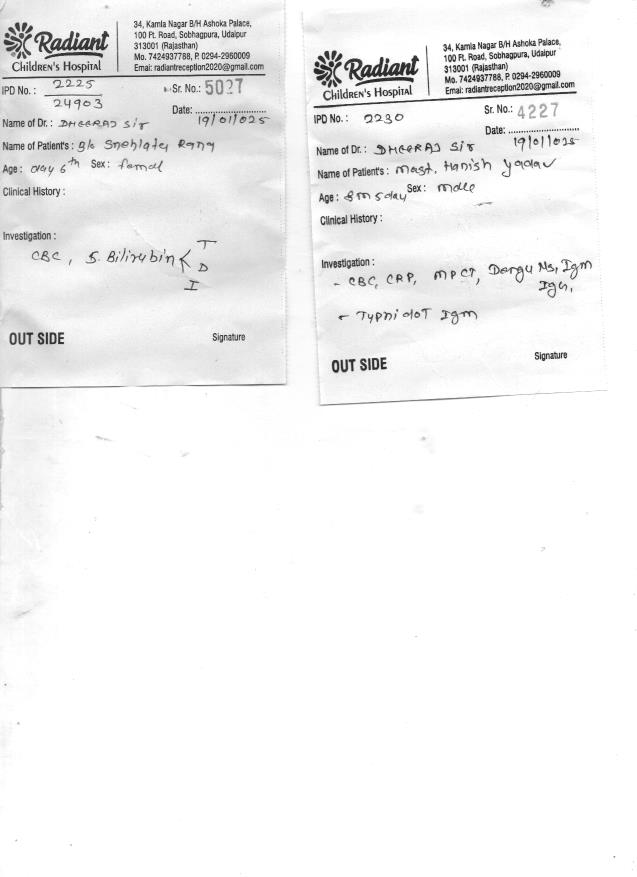 Radiant
Children's Hospital
34, Kamla Nagar B/H Ashoka Palace,
100 Ft. Road, Sobhagpura, Udaipur
313001 (Rajasthan)
Mo. 7424937788, P. 0294-2960009
Emai: radiantreception2020@gmail.com
IPD No. : 2225
24903
Sr. No.: 5027
Date: 19/01/025
Name of Dr. : DHEERAJ Sir
Name of Patient's : B/o Snehlata Rana
Age : day 6th Sex: femal
Clinical History :
Investigation :
CBC, S. Bilirubin < T
D
I
OUT SIDE Signature
Radiant
Children's Hospital
34, Kamla Nagar B/H Ashoka Palace,
100 Ft. Road, Sobhagpura, Udaipur
313001 (Rajasthan)
Mo. 7424937788, P. 0294-2960009
Emai: radiantreception2020@gmail.com
IPD No. : 2230
Sr. No.: 4227
Date: 19/01/025
Name of Dr.: DHEERAJ Sir
Name of Patient's : mast. Hanish yadav
Age : 8m 5day Sex: male
Clinical History :
Investigation :
- CBC, CRP, MPCT, Dengu Ns, Igm
IgG,
- Typhidot Igm
OUT SIDE Signature